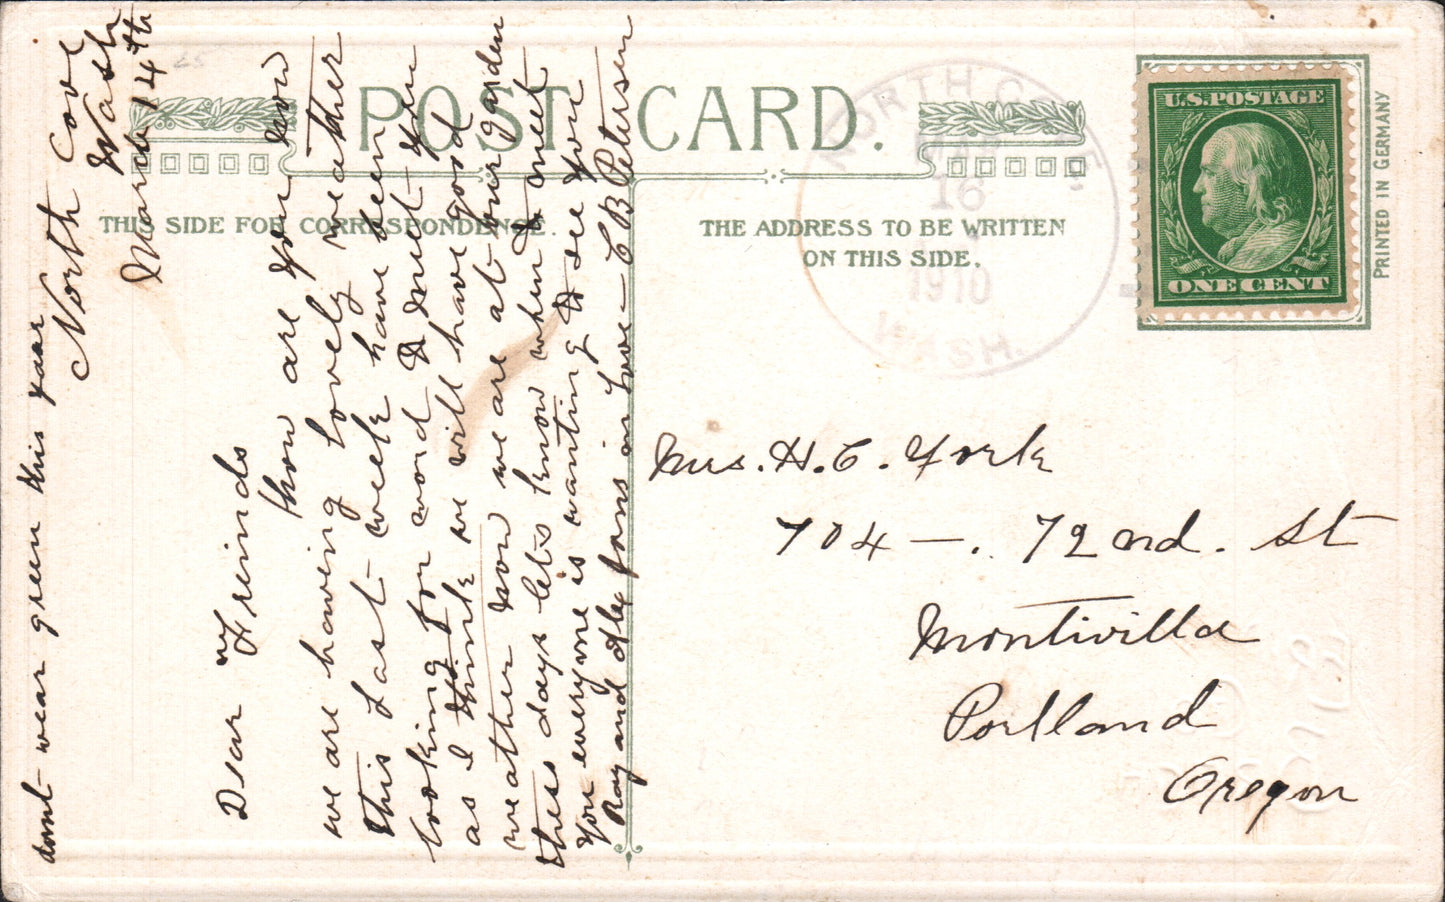 POST CARD.
THIS SIDE FOR CORRESPONDENCE.
THE ADDRESS TO BE WRITTEN
ON THIS SIDE.
U.S. POSTAGE
ONE CENT
PRINTED IN GERMANY
NORTH COVE
MAR
16
1910
WASH.
North Cove
Wash
March 14th
Dear Freinds
how are you now
we are having lovely weather
this last week have been
looking for word to meet you
as I think we will have good
weather now we are at our garden
thes days lets know when to meet
you everyone is wanting to see you
Ray and Alex joins in Love — C B Petersen
dont wear green this year
Mrs. H. C. York
704 —. 72nd. St
Montivilla
Portland
Oregon